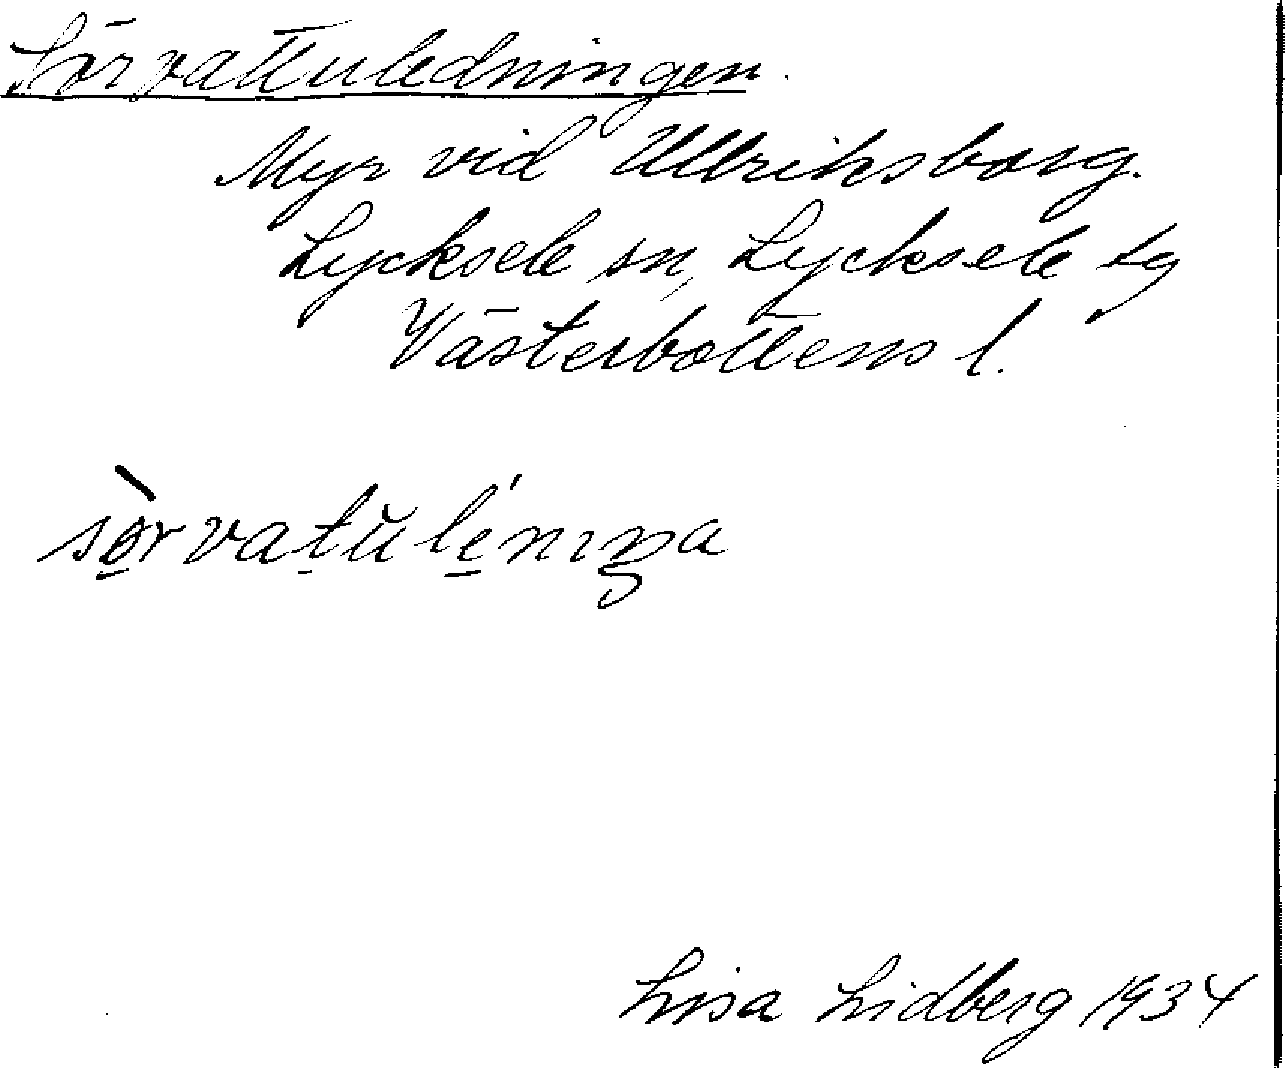 Sörvattuledningen.
Myr vid Ullriksborg.
Lycksele sn, Lycksele tg
Västerbottens l.
sö̀rvatŭlé̱nıŋa
Lisa Lidberg 1934